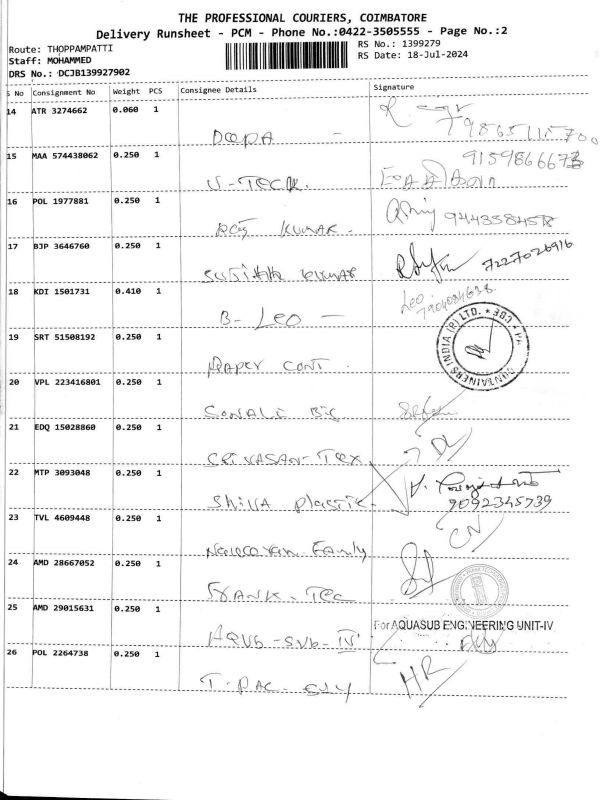 THE PROFESSIONAL COURIERS, COIMBATORE
Delivery Runsheet - PCM - Phone No.:0422-3505555 - Page No.:2
Route: THOPPAMPATTI
RS No.: 1399279
Staff: MOHAMMED
RS Date: 18-Jul-2024
DRS No.: DCJB139927902
S No Consignment No Weight PCS Consignee Details Signature
14 ATR 3274662 0.060 1
DeepA -
15 MAA 574438062 0.250 1
9159866673
U-Tech.
16 POL 1977881 0.250 1
9443584578
Raj KUMAR -
17 BJP 3646760 0.250 1
7227026916
SUJITHA KUMAR
18 KDI 1501731 0.410 1
Leo
7904084638
B- Leo -
19 SRT 51508192 0.250 1
CONTAINERS INDIA (P) LTD.
PAPER CONT.
20 VPL 223416801 0.250 1
SONALI
21 EDQ 15028860 0.250 1
SRIVASAN-TEX
22 MTP 3093048 0.250 1
9092345739
Shiva Plastic
23 TVL 4609448 0.250 1
Family
24 AMD 28667052 0.250 1
FRANK. Tec
25 AMD 29015631 0.250 1
For AQUASUB ENGINEERING UNIT-IV
AQUB-SUB-IV
26 POL 2264738 0.250 1
HR
T. PAC-